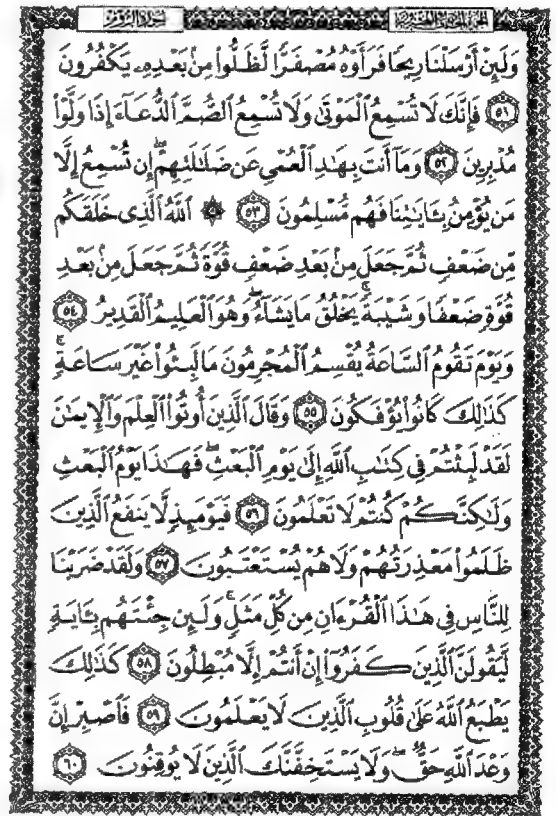 الجزء الحادي والعشرون سورة الروم
وَلَئِنْ أَرْسَلْنَا رِيحًا فَرَأَوْهُ مُصْفَرًّا لَّظَلُّوا۟ مِنۢ بَعْدِهِۦ يَكْفُرُونَ
﴿٥١﴾ فَإِنَّكَ لَا تُسْمِعُ ٱلْمَوْتَىٰ وَلَا تُسْمِعُ ٱلصُّمَّ ٱلدُّعَآءَ إِذَا وَلَّوْا۟
مُدْبِرِينَ ﴿٥٢﴾ وَمَآ أَنتَ بِهَـٰدِ ٱلْعُمْىِ عَن ضَلَـٰلَتِهِمْ ۖ إِن تُسْمِعُ إِلَّا
مَن يُؤْمِنُ بِـَٔايَـٰتِنَا فَهُم مُّسْلِمُونَ ﴿٥٣﴾ ۞ ٱللَّهُ ٱلَّذِى خَلَقَكُم
مِّن ضَعْفٍ ثُمَّ جَعَلَ مِنۢ بَعْدِ ضَعْفٍ قُوَّةً ثُمَّ جَعَلَ مِنۢ بَعْدِ
قُوَّةٍ ضَعْفًا وَشَيْبَةً ۚ يَخْلُقُ مَا يَشَآءُ ۖ وَهُوَ ٱلْعَلِيمُ ٱلْقَدِيرُ ﴿٥٤﴾
وَيَوْمَ تَقُومُ ٱلسَّاعَةُ يُقْسِمُ ٱلْمُجْرِمُونَ مَا لَبِثُوا۟ غَيْرَ سَاعَةٍ ۚ
كَذَٰلِكَ كَانُوا۟ يُؤْفَكُونَ ﴿٥٥﴾ وَقَالَ ٱلَّذِينَ أُوتُوا۟ ٱلْعِلْمَ وَٱلْإِيمَـٰنَ
لَقَدْ لَبِثْتُمْ فِى كِتَـٰبِ ٱللَّهِ إِلَىٰ يَوْمِ ٱلْبَعْثِ ۖ فَهَـٰذَا يَوْمُ ٱلْبَعْثِ
وَلَـٰكِنَّكُمْ كُنتُمْ لَا تَعْلَمُونَ ﴿٥٦﴾ فَيَوْمَئِذٍ لَّا يَنفَعُ ٱلَّذِينَ
ظَلَمُوا۟ مَعْذِرَتُهُمْ وَلَا هُمْ يُسْتَعْتَبُونَ ﴿٥٧﴾ وَلَقَدْ ضَرَبْنَا
لِلنَّاسِ فِى هَـٰذَا ٱلْقُرْءَانِ مِن كُلِّ مَثَلٍ ۚ وَلَئِن جِئْتَهُم بِـَٔايَةٍ
لَّيَقُولَنَّ ٱلَّذِينَ كَفَرُوٓا۟ إِنْ أَنتُمْ إِلَّا مُبْطِلُونَ ﴿٥٨﴾ كَذَٰلِكَ
يَطْبَعُ ٱللَّهُ عَلَىٰ قُلُوبِ ٱلَّذِينَ لَا يَعْلَمُونَ ﴿٥٩﴾ فَٱصْبِرْ إِنَّ
وَعْدَ ٱللَّهِ حَقٌّ ۖ وَلَا يَسْتَخِفَّنَّكَ ٱلَّذِينَ لَا يُوقِنُونَ ﴿٦٠﴾